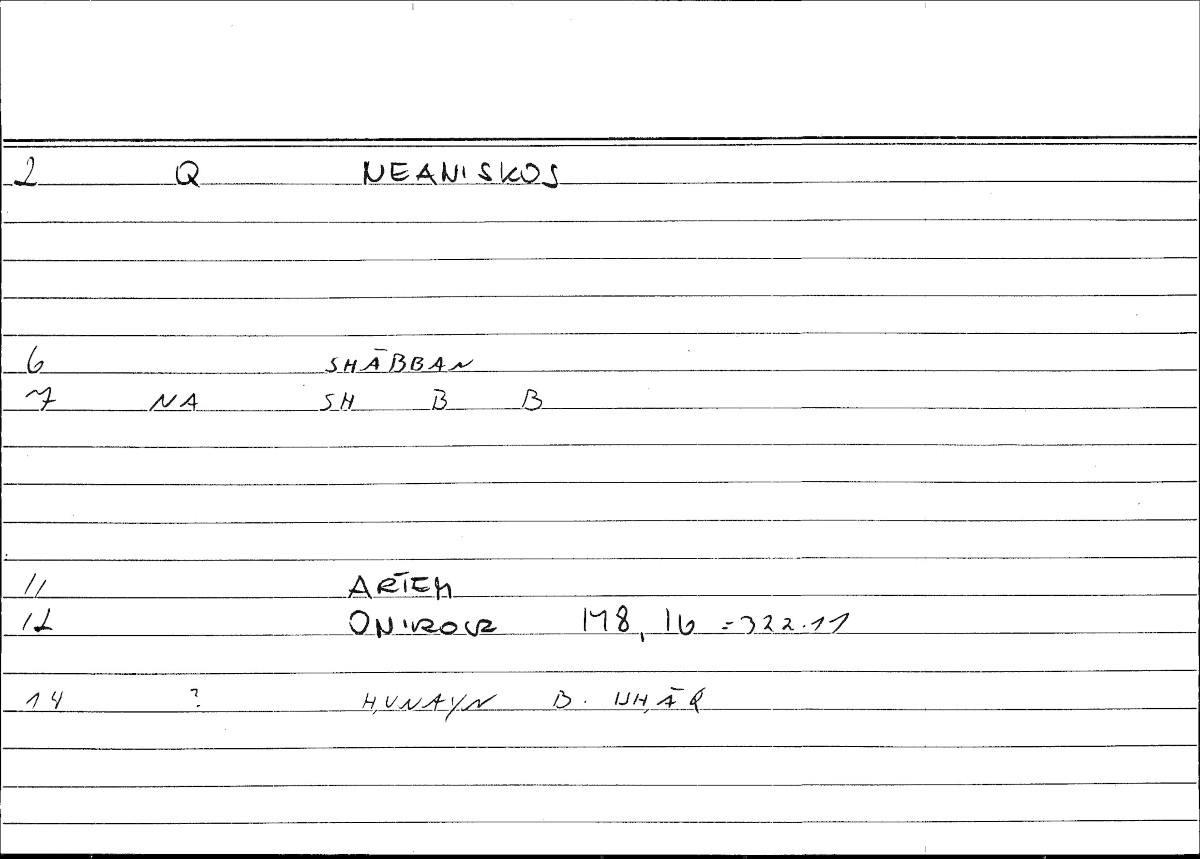 2 Q NEANISKOS
6 SHĀBBAN
7 NA SH B B
11 ARTEM
12 ONIROCR 178, 16 =322.11
14 ? ḤUNAYN B. ISḤĀQ